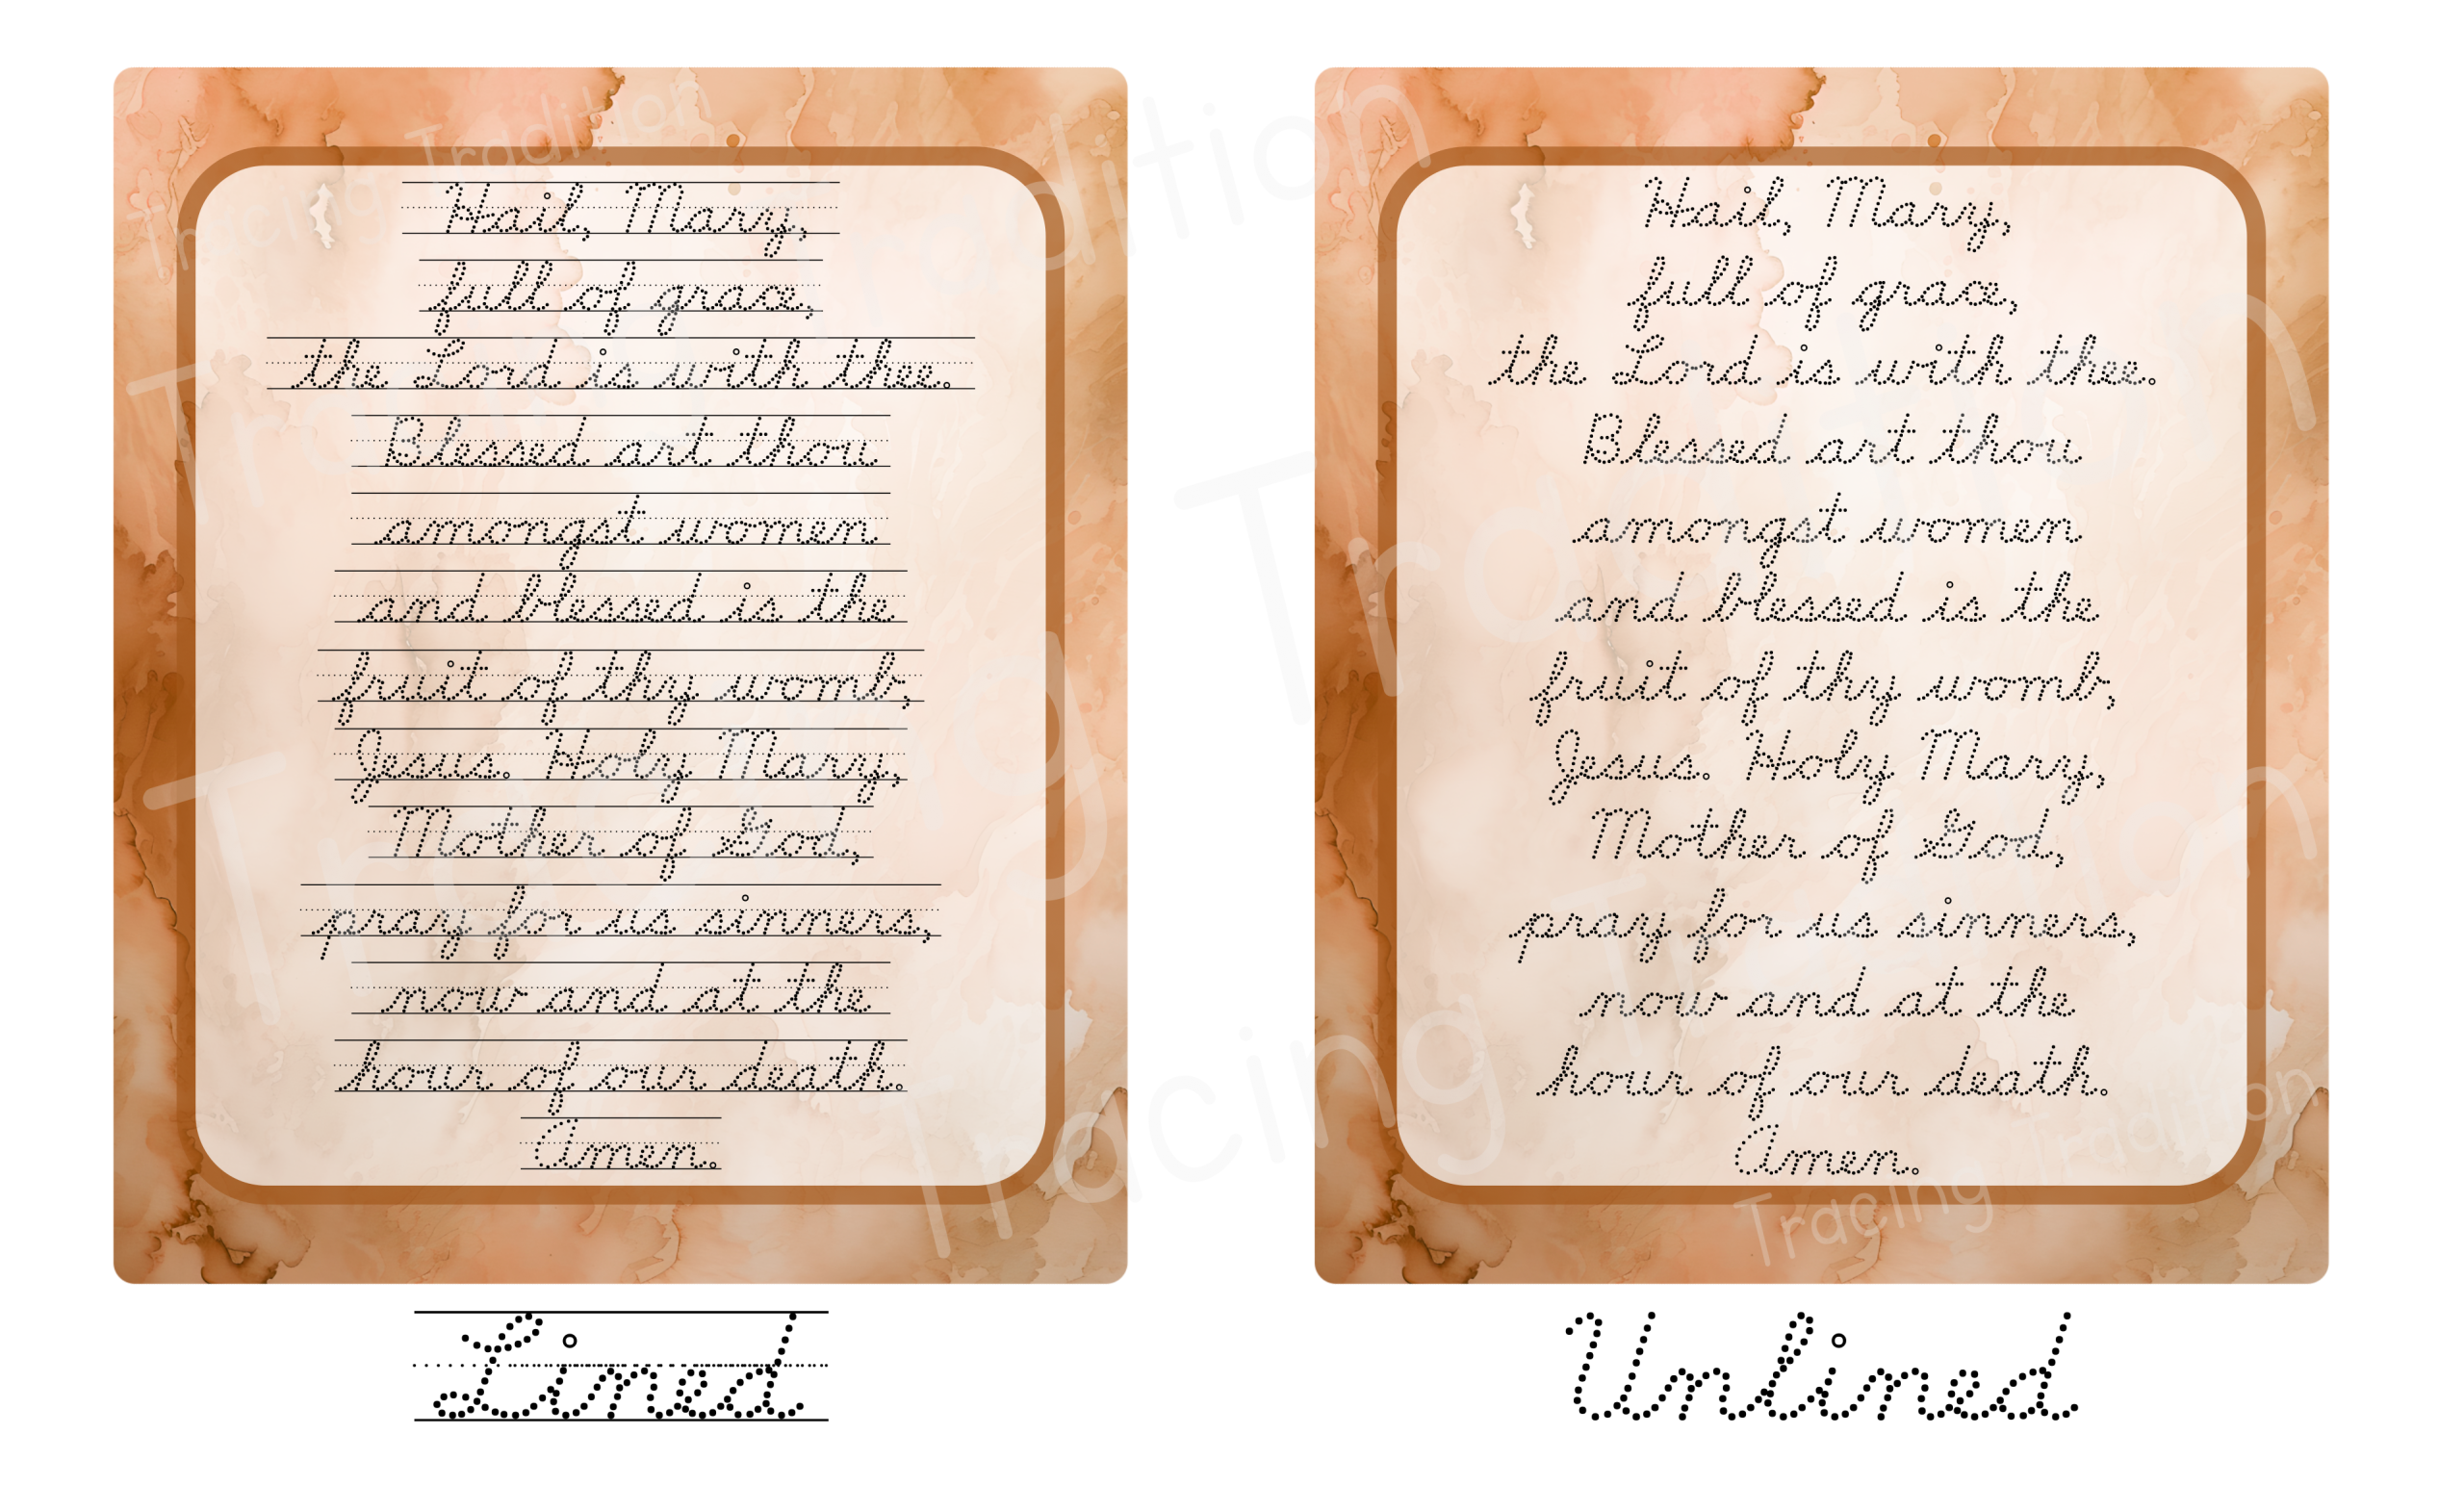 Hail, Mary,
full of grace,
the Lord is with thee.
Blessed art thou
amongst women
and blessed is the
fruit of thy womb,
Jesus. Holy Mary,
Mother of God,
pray for us sinners,
now and at the
hour of our death.
Amen.
Lined
Hail, Mary,
full of grace,
the Lord is with thee.
Blessed art thou
amongst women
and blessed is the
fruit of thy womb,
Jesus. Holy Mary,
Mother of God,
pray for us sinners,
now and at the
hour of our death.
Amen.
Unlined
Tracing Tradition
Tracing Tradition
Tracing Tradition
Tracing Tradition